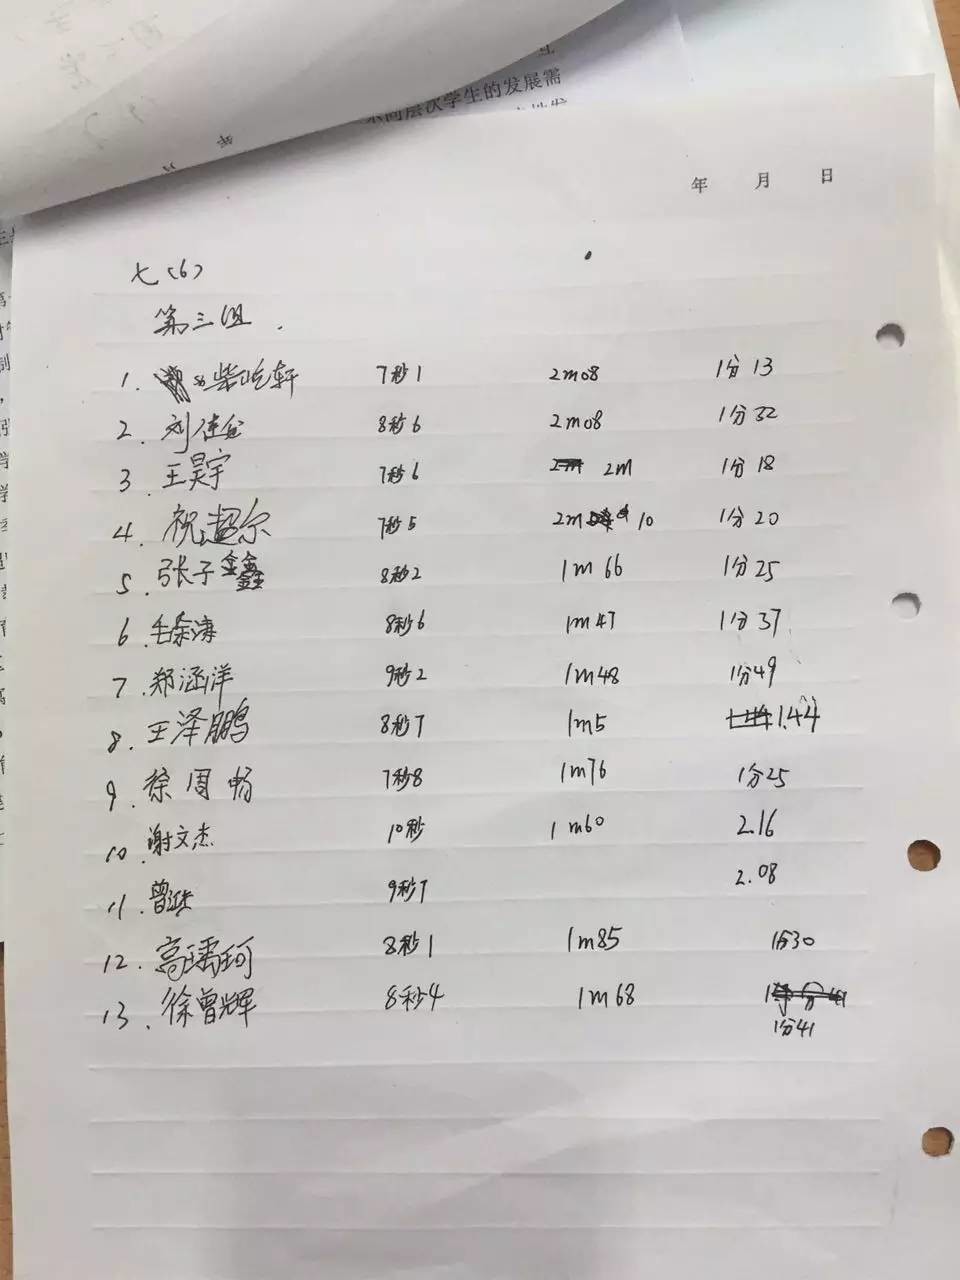 不同层次学生的发展需
年 月 日
七(6)
第三组.
1. 柴屹轩 7秒1 2m08 1分13
2. 刘佳 8秒6 2m08 1分32
3. 王昊宇 7秒6 2m 1分18
4. 祝超尔 7秒5 2m 10 1分20
5. 张子鑫 8秒2 1m66 1分25
6. 毛 涛 8秒6 1m47 1分37
7. 郑涵洋 9秒2 1m48 1分49
8. 王泽鹏 8秒7 1m5 1.44
9. 徐周畅 7秒8 1m76 1分25
10. 谢文杰 10秒 1m60 2.16
11. 曾 9秒7 2.08
12. 高 珂 8秒1 1m85 1分30
13. 徐曾辉 8秒4 1m68
1分41